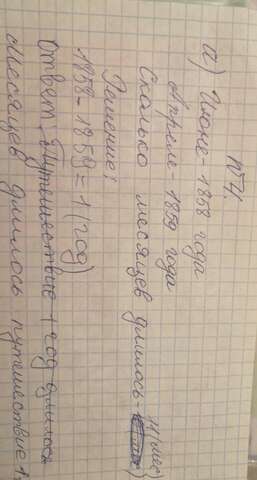 №4.
а) Июне - 1858 года
Апреле - 1859 года
Сколько месяцев длилось - 11(мес)
Решение:
1858 - 1859 = 1 (год)
Ответ: Путешествие 1 год длилось
Месяцев длилось путешествие 1